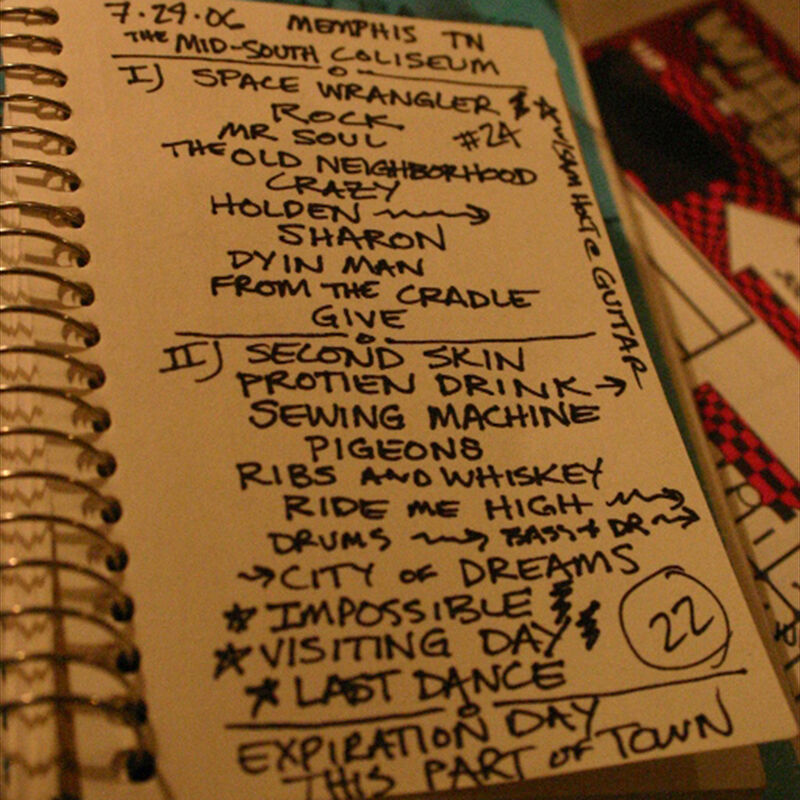 7.29.06 MEMPHIS TN
THE MID-SOUTH COLISEUM
I) SPACE WRANGLER
ROCK
MR SOUL #24
THE OLD NEIGHBORHOOD
CRAZY
HOLDEN →
SHARON
DYIN MAN
FROM THE CRADLE
GIVE
☆ W/SAM HOLT @ GUITAR
II) SECOND SKIN
PROTIEN DRINK →
SEWING MACHINE
PIGEONS
RIBS AND WHISKEY
RIDE ME HIGH →
DRUMS → BASS + DR →
→ CITY OF DREAMS
☆ IMPOSSIBLE
☆ VISITING DAY
22
☆ LAST DANCE
EXPIRATION DAY
THIS PART OF TOWN